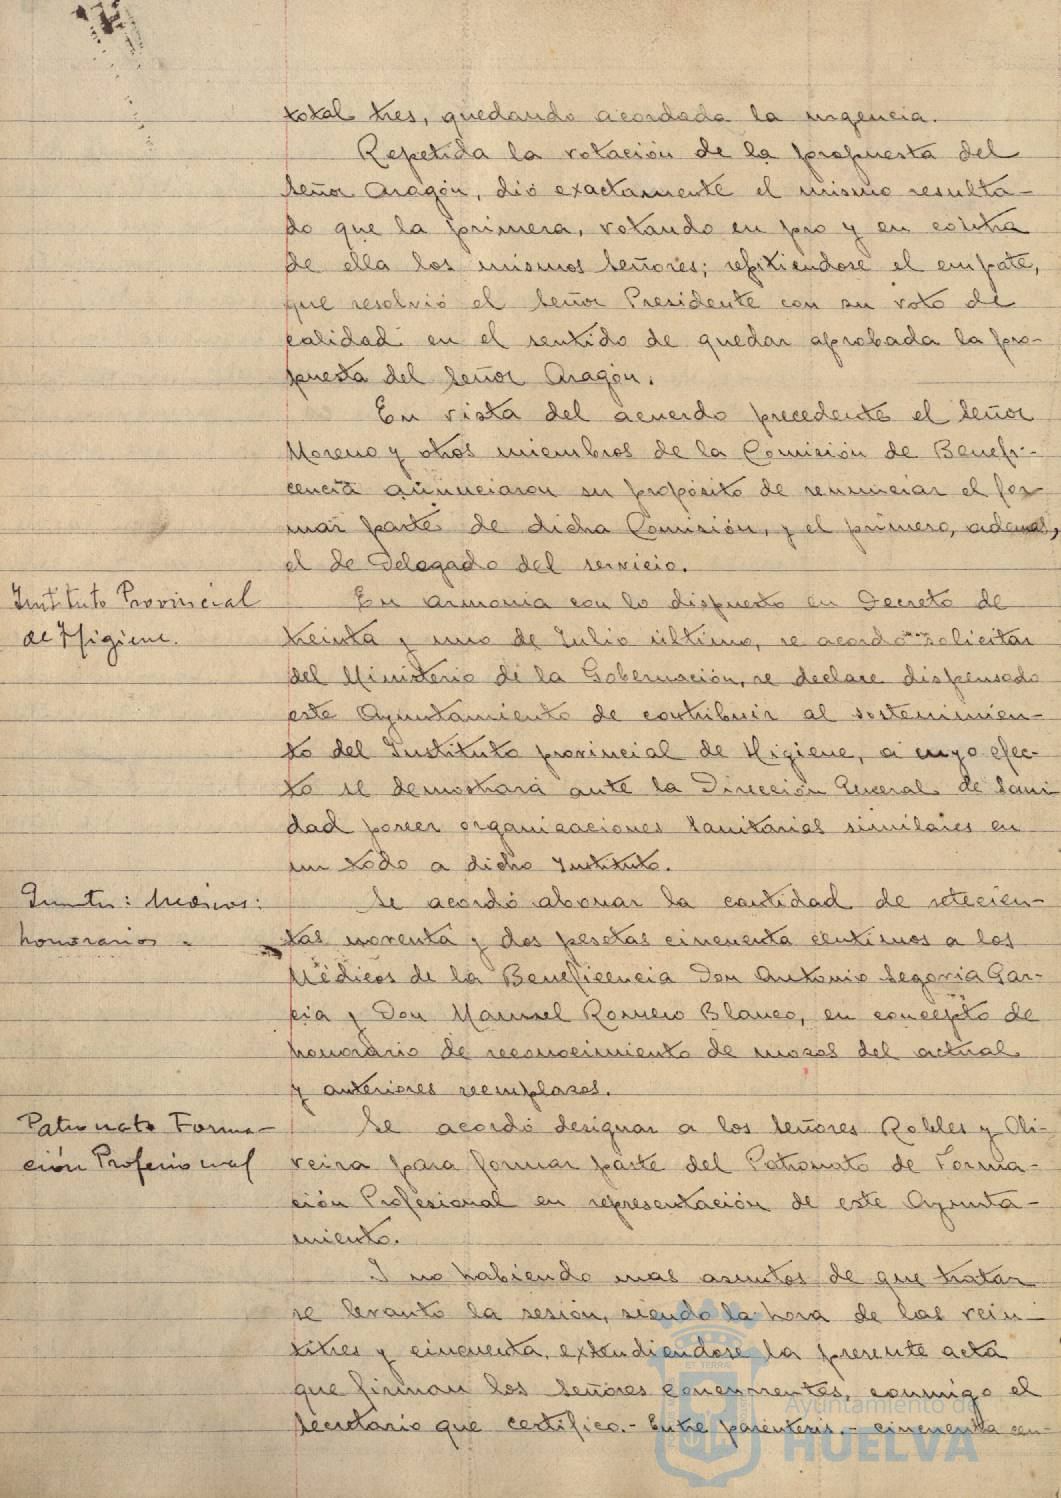 total tres, quedando acordada la urgencia.
Repetida la votación de la propuesta del
Señor Aragón, dió exactamente el mismo resulta-
do que la primera, votando en pro y en contra
de ella los mismos Señores; repitiendose el empate,
que resolvió el Señor Presidente con su voto de
calidad en el sentido de quedar aprobada la pro-
puesta del Señor Aragón.
En vista del acuerdo precedente el Señor
Moreno y otros miembros de la Comisión de Benefi-
cencia anunciaron su propósito de renunciar el for
mar parte de dicha Comisión, y el primero, ademas,
el de Delegado del servicio.
Instituto Provincial
de Higiene.
En armonia con lo dispuesto en Decreto de
treinta y uno de Julio último, se acordó solicitar
del Ministerio de la Gobernación, se declare dispensado
este Ayuntamiento de contribuir al sostenimien-
to del Instituto provincial de Higiene, a cuyo efec-
to se demostrará ante la Dirección General de Sani
dad poseer organizaciones sanitarias similares en
un todo a dicho Instituto.
Quintas: Médicos:
honorarios.
Se acordó abonar la cantidad de setecien-
tas noventa y dos pesetas cincuenta centimos a los
Médicos de la Beneficencia Don Antonio Segovia Gar-
cia y Don Manuel Romero Blanco, en concepto de
honorario de reconocimiento de mozos del actual
y anteriores reemplazos.
Patronato Forma-
ción Profesional
Se acordó designar a los Señores Robles y Oli-
veira para formar parte del Patronato de Forma-
ción Profesional en representación de este Ayunta-
miento.
I no habiendo mas asuntos de que tratar
se levantó la sesión, siendo la hora de las vein-
titres y cincuenta, extendiendose la presente acta
que firman los Señores concurrentes, conmigo el
Secretario que certifico.- Entre parentesis.- cincuenta cen-
Ayuntamiento de
HUELVA